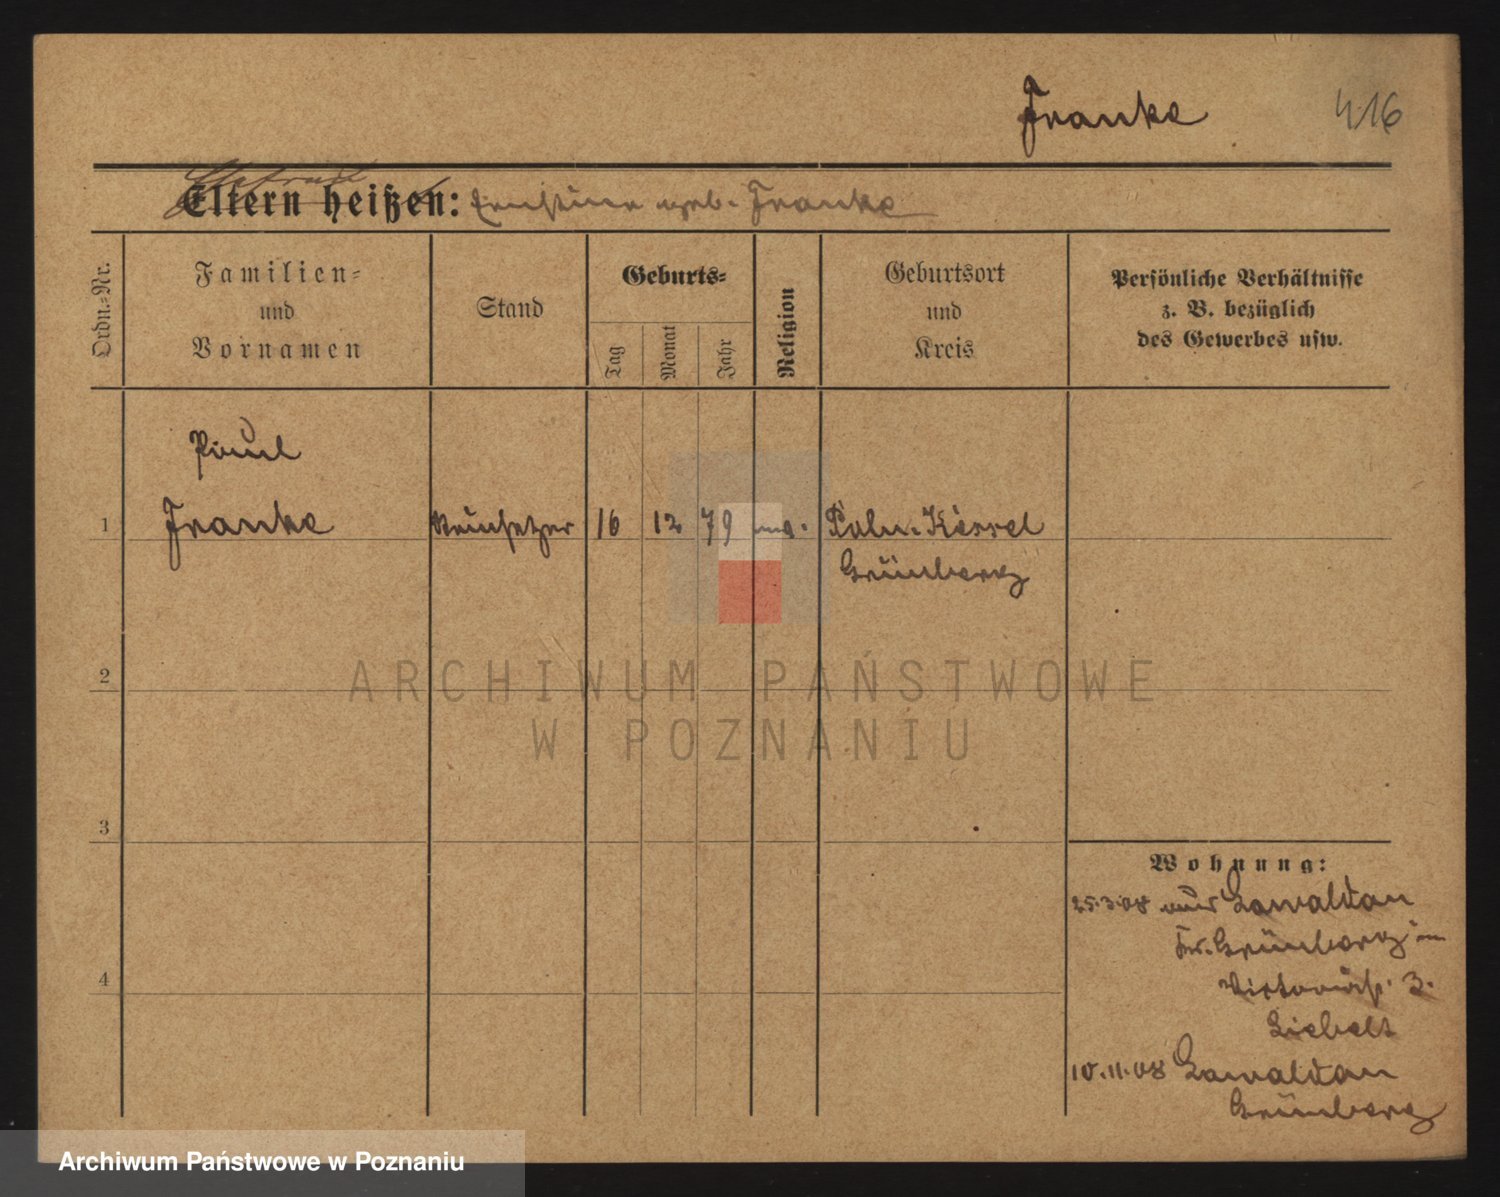 Franke
416
Ehefrau
Eltern heißen: Ernstine geb. Franke
Ordn.-Nr.
Familien-
und
Vornamen
Stand
Geburts-
Tag
Monat
Jahr
Religion
Geburtsort
und
Kreis
Persönliche Verhältnisse
z. B. bezüglich
des Gewerbes usw.
Paul
1 Franke Steinsetzer 16 12 79 Poln.-Kessel
Grünberg
2
3
4
Wohnung:
25.3.08 aus Lawaldau
Kr. Grünberg in
Victoriastr. 3.
Liebelt
10.11.08 Lawaldau
Grünberg
ARCHIWUM PAŃSTWOWE
W POZNANIU
Archiwum Państwowe w Poznaniu